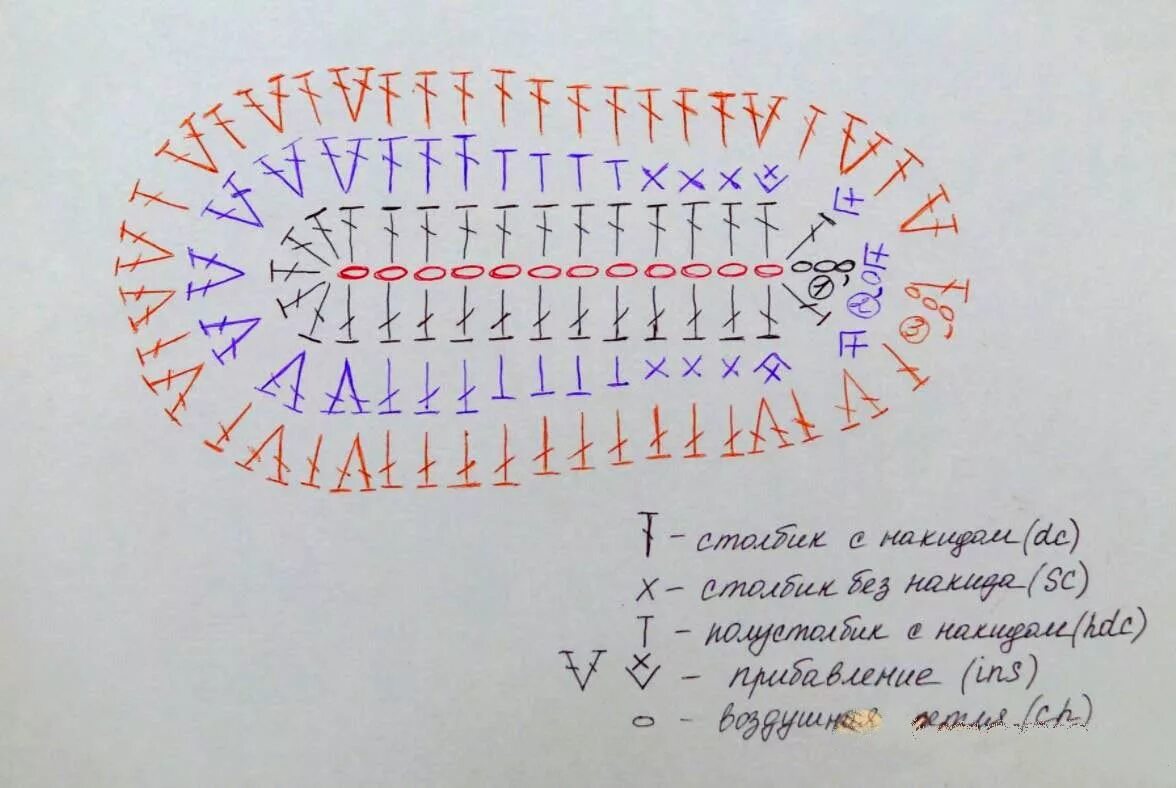 1
2
3
- столбик с накидом (dc)
x - столбик без накида (sc)
- полустолбик с накидом (hdc)
- прибавление (ins)
- воздушная (ch)